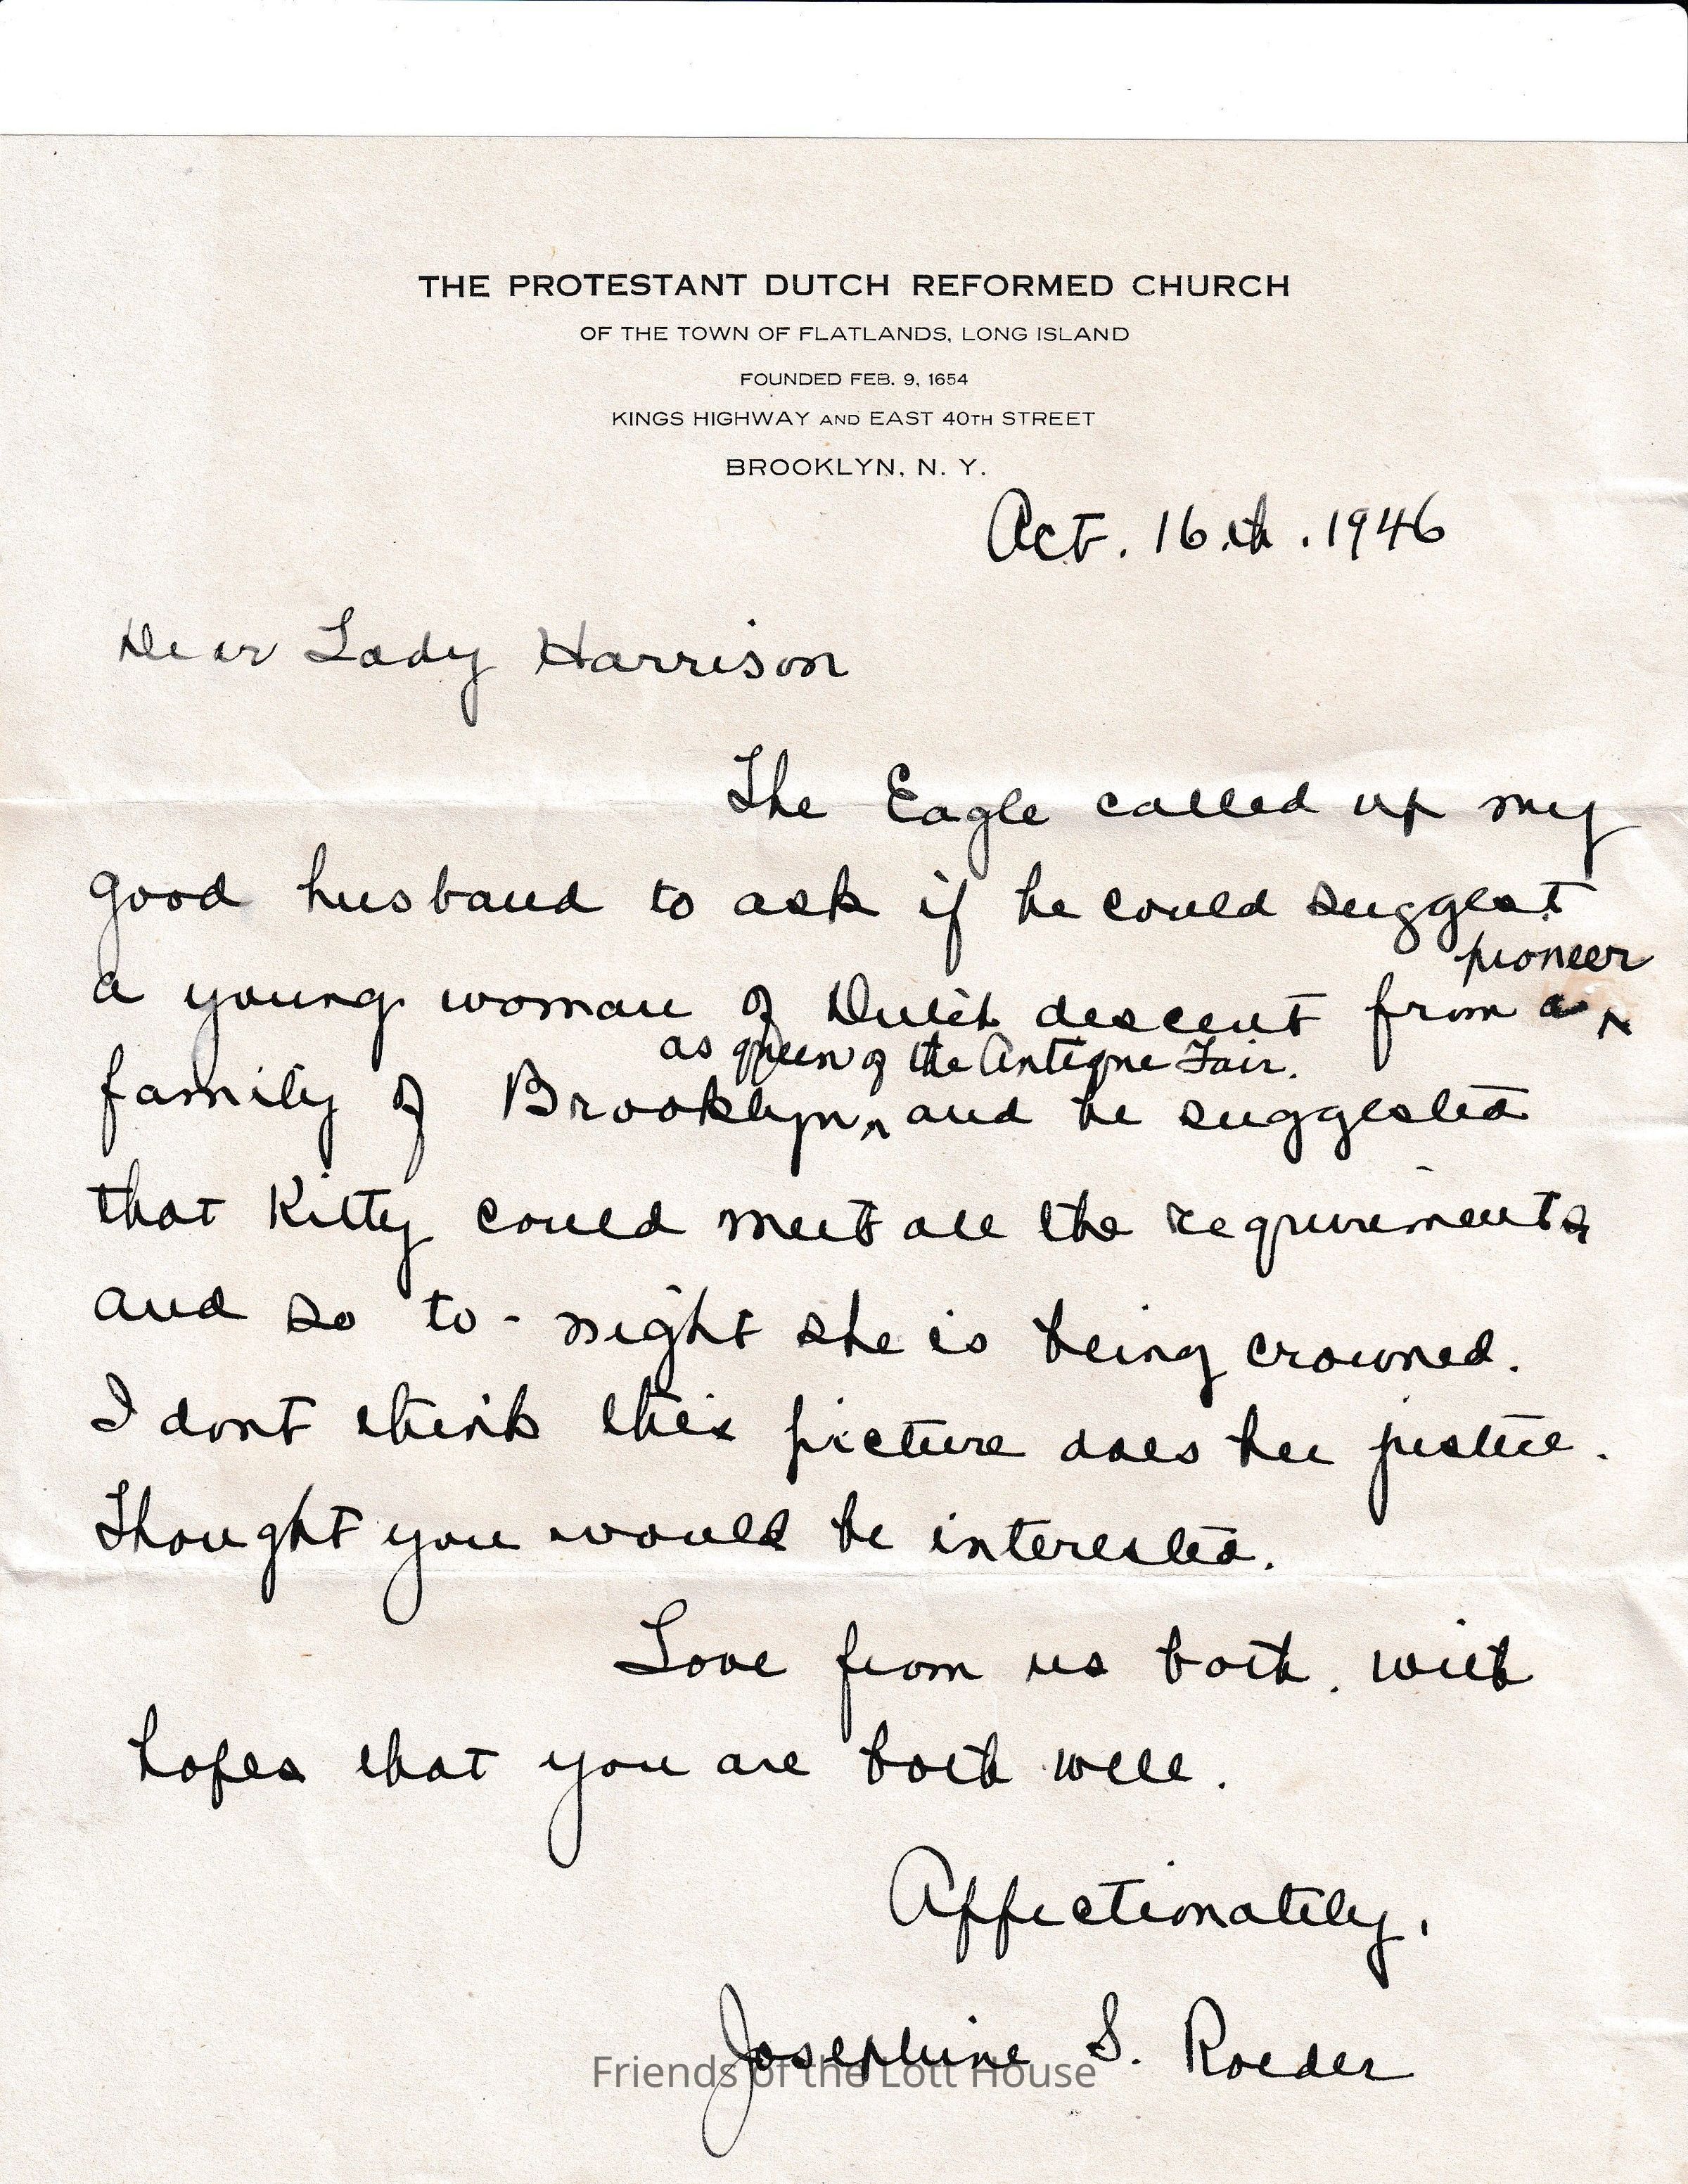 THE PROTESTANT DUTCH REFORMED CHURCH
OF THE TOWN OF FLATLANDS, LONG ISLAND
FOUNDED FEB. 9, 1654
KINGS HIGHWAY AND EAST 40TH STREET
BROOKLYN, N. Y.
Oct. 16.th. 1946
Dear Lady Harrison
The Eagle called up my
good husband to ask if he could suggest
pioneer
a young woman of Dutch descent from a ^
as queen of the Antique Fair.
family of Brooklyn, ^ and he suggested
that Kitty could meet all the requirements
and so to-night she is being crowned.
I dont think this picture does her justice.
Thought you would be interested.
Love from us both. with
hopes that you are both well.
Affectionately,
Josephine S. Roeder
Friends of the Lott House